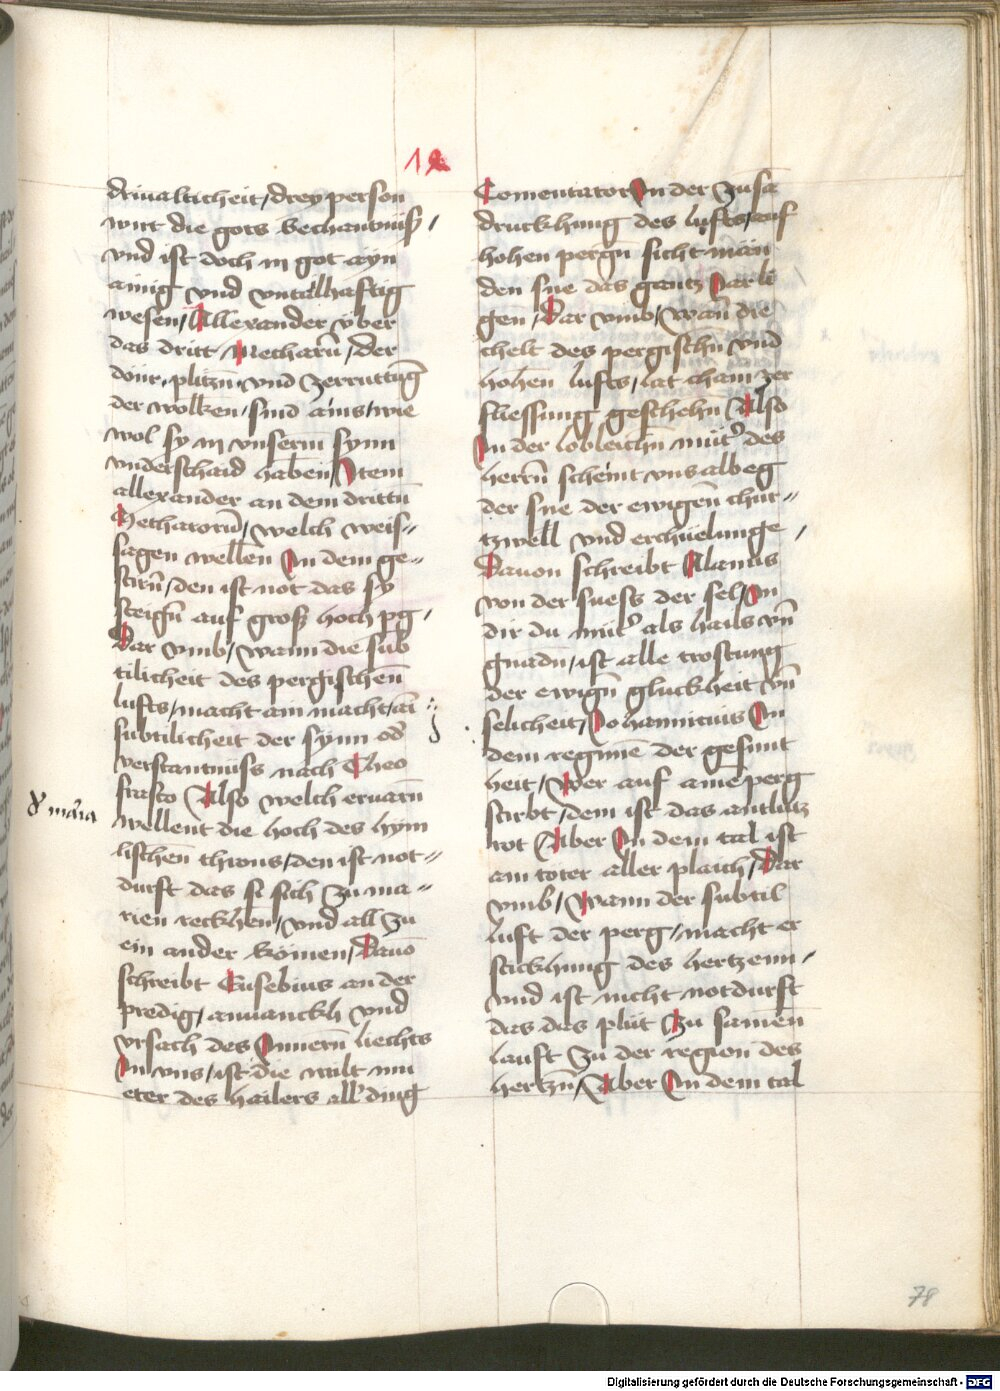 driualticheit / drey person
wirt die gots bechantnüß /
vnd ist doch in got ayn
ainig vnd vntailhafftig
wesen / Allexander vber
das dritt Mecharū / der
doñr / plitzn̄ vnd Zerruttung
der wolken / sind ains / wie
wol sy in vnserm synn
vnderschaid haben / Item
allexander an dem drittn̄
Methatorū / welch weis=
sagen wellen In dem ge=
stirn̄ / den ist not das sy
steign̄ auf groß hoch pg /
Dar vmb / wann die sub
tilicheit des pergischen̄
lufts / macht ain macht / ain
subtilicheit der synn od'
verstantnüss nach Theo
frasto Also welch eruarn̄
wellent die hoch des hym
lischen throns / den ist not=
durft das si sich Zu ma=
rien reckhen / vnd all Zu
ein ander kömen / Dauō
schreibt Eusebius an der
predig / anuanckh vnd
vrsach des Innern̄ liechts
In vns / ist die milt mu
eter des hailers all' ding
d' maria
Comentator In der Zusā
druckhung des lufts / auf
hohen pergn̄ sicht man
den sne das gantz Jar li
gen / Dar vmb / wan̄ die
chelt des pergischn̄ vnd
hohen lufts / lat chain zer
fliessung geschehn̄ Also
In der lobleichn̄ müt' des
herrn̄ scheint vns albeg
der sne der ewigen chur=
tzweil vnd erchüelunge /
Dauon schreibt Alanus
von der suess der sel / In
dir du müt' als hails vn̄
gnadn̄ / ist alle trostung
der ewign̄ gluckheit vn̄
selicheit / Johannicius In
dem regimē der gesunt
heit / Wer auf aine perg
stirbt / dem ist das antlutz
rot Aber In dem tal ist
ain toter aller plaich / Dar
vmb / Wann der subtil
luft der perg / macht er
stickhung des hertzenn /
vnd ist nicht notdurft
das das plüt Zu samen
lauft Zu der region des
hertzn̄ / Aber In dem tal
78
Digitalisierung gefördert durch die Deutsche Forschungsgemeinschaft - DFG